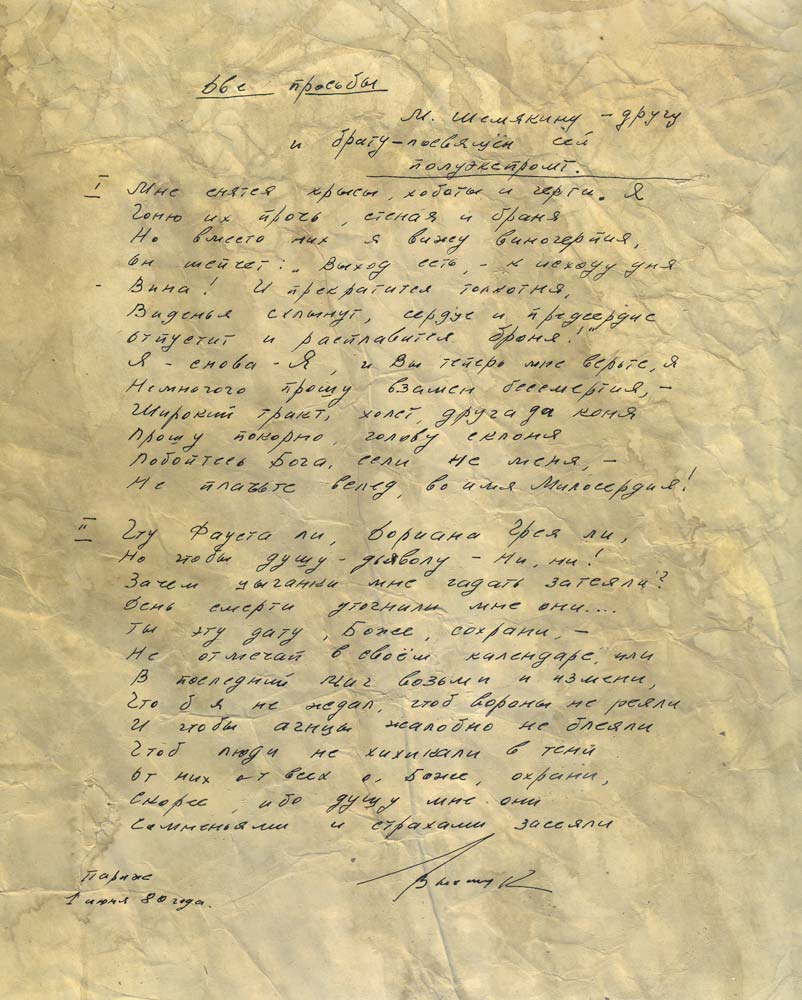 Две просьбы
М. Шемякину – другу
и брату – посвящён сей
полуэкспромт.
I Мне снятся крысы, хоботы и черти. Я
Гоню их прочь, стеная и браня
Но вместо них я вижу виночерпия,
Он шепчет: „Выход есть, – к исходу дня
- Вина! И прекратится толкотня,
Виденья схлынут, сердце и предсердие
отпустит и расплавится броня!"
Я – снова – Я, и Вы теперь мне верьте, я
Немногого прошу взамен бессмертия, –
Широкий тракт, холст, друга да коня
Прошу покорно, голову склоня
Побойтесь Бога, если не меня, –
Не плачьте вслед, во имя Милосердия!
II Чту Фауста ли, Дориана Грея ли,
Но чтобы душу – дьяволу – Ни, ни!
Зачем цыганки мне гадать затеяли?
День смерти уточнили мне они....
Ты эту дату, Боже, сохрани, –
Не отмечай в своём календаре, или
В последний миг возьми и измени,
Что б я не ждал, чтоб вороны не реяли
И чтобы агнцы жалобно не блеяли
Чтоб люди не хихикали в тени
От них от всех о, Боже, охрани,
Скорее, ибо душу мне они
Сомненьями и страхами засеяли
Париж
1 июня 80 года.